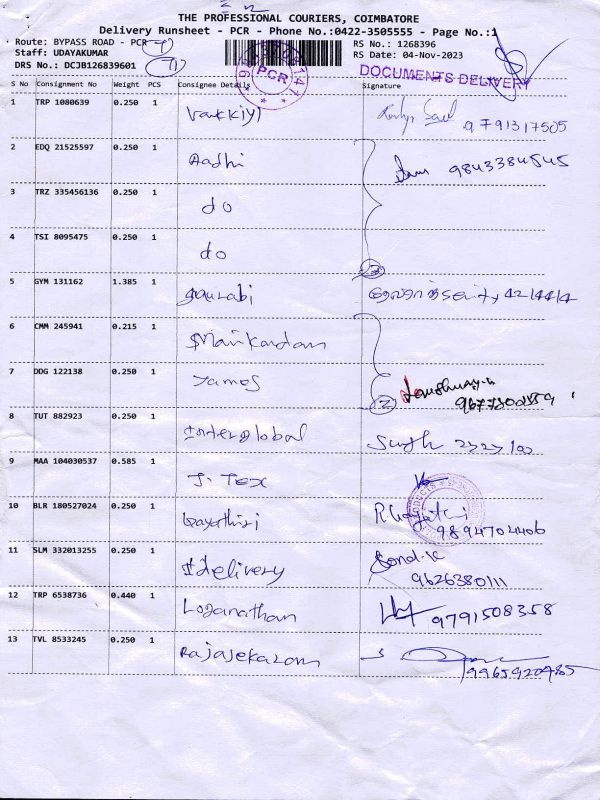 THE PROFESSIONAL COURIERS, COIMBATORE
Delivery Runsheet - PCR - Phone No.:0422-3505555 - Page No.:1
Route: BYPASS ROAD - PCR
Staff: UDAYAKUMAR
DRS No.: DCJB126839601
RS No.: 1268396
RS Date: 04-Nov-2023
PCR
DOCUMENTS DELIVERY
S No Consignment No Weight PCS Consignee Details Signature
1 TRP 1080639 0.250 1 9791317505
2 EDQ 21525597 0.250 1 Aadhi 9843384545
3 TRZ 335456136 0.250 1 do
4 TSI 8095475 0.250 1 do
3
5 GYM 131162 1.385 1
6 CMM 245941 0.215 1
7 DDG 122138 0.250 1 James
2
8 TUT 882923 0.250 1 Interglobal
9 MAA 104030537 0.585 1 J. Tex
10 BLR 180527024 0.250 1 Gayathiri 9894702406
11 SLM 332013255 0.250 1 Idelivery 9626380111
12 TRP 6538736 0.440 1 Loganathan 9791508358
13 TVL 8533245 0.250 1 Rajasekaran 9965920485